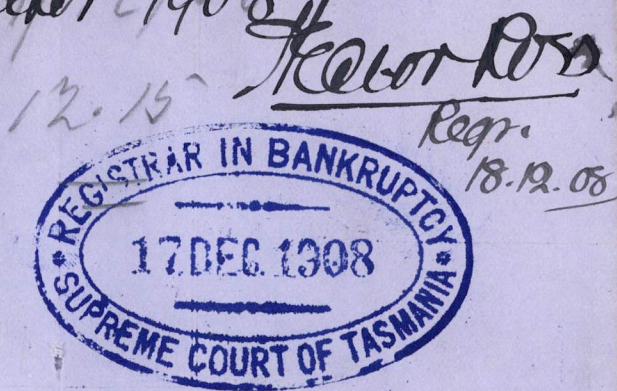 1908
Hector Ross
12.15
Regr.
18.12.08
REGISTRAR IN BANKRUPTCY
17 DEC. 1908
SUPREME COURT OF TASMANIA